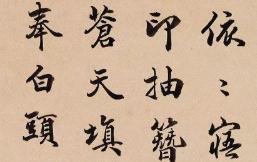 依〻寤
印抽簪
蒼天填
奉白頭